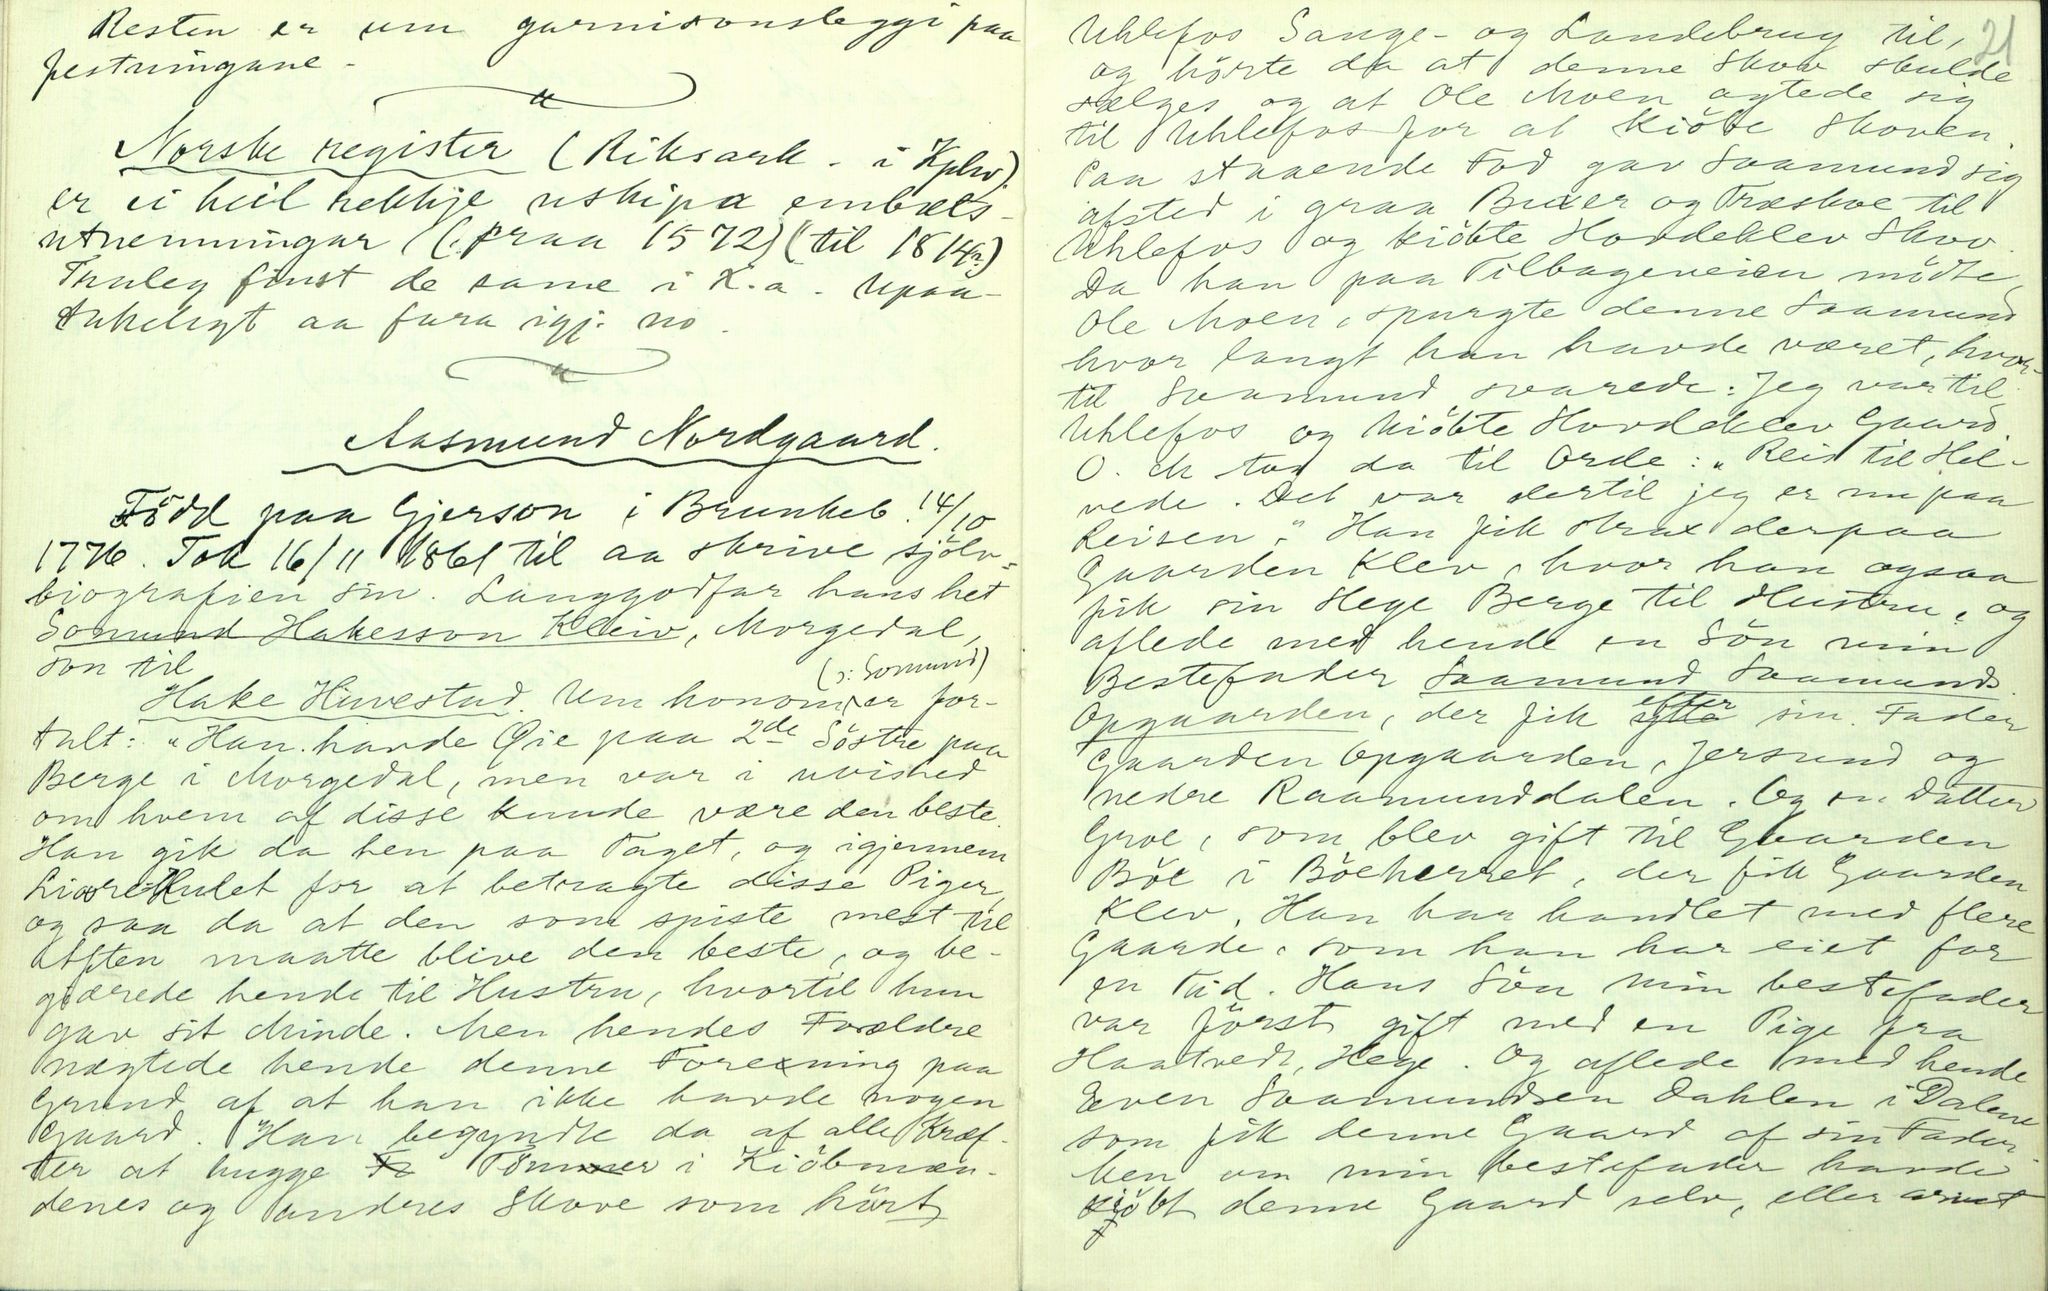 Resten er um garnisonsleggi paa
festningane.
Norske register (Riksark. i Kphv).
er ei heil rekkje uskipa embæts-
utnemningar (fraa 1572) (til 1814?)
Truleg finst de same i R.a. Upaa-
tukelegt aa fara igj. no.
Aasmund Nordgaard.
Född paa Gjerson i Brunkeb. 14/10
1776. Tok 16/11 1861 til aa skrive sjölv-
biografien sin. Langgodfar hans het
Somund Hakesson Kleiv, Morgedal,
son til
Hake Huvestad. Um honom (ɔ: Somund) er for-
talt: "Han havde Øie paa 2de Söstre paa
Berge i Morgedal, men var i uvished
om hvem af disse kunde være den beste.
Han gik da hen paa Taget, og igjennem
Liorehulet for at betragte disse Piger,
og saa da at den som spiste mest til
Aften maatte blive den beste, og be-
gjærede hende til Hustru, hvortil hun
gav sit Minde. Men hendes Forældre
nægtede hende denne Forening paa
Grund af at han ikke havde nogen
Gaard. Han begyndte da af alle Kræf-
ter at hugge Tömmer i Kiöbmæn-
denes og anderes Skove som hört
21
Uhlefos Sauge- og Landebrug til,
og hörte da at denne Skov skulde
sælges og at Ole Moen agtede sig
til Uhlefos for at kiöbe Skoven.
Paa staaende Fod gav Saamund sig
afsted i graa Buxer og Træskoe til
Uhlefos og kiöbte Hovdeklev Skov.
Da han paa Tilbageveien mödte
Ole Moen, spurgte denne Saamund
hvor langt han havde været, hvor-
til Saamund svarede: Jeg var til
Uhlefos og kiöbte Hovdeklev Gaard.
O. M tog da til Orde: "Reis til Hel-
vede. Det var dertil jeg er nu paa
Reisen." Han fik strax derpaa
Gaarden Klev, hvor han ogsaa
fik sin Hege Berge til Hustru, og
aflede med hende en Sön min
Bestefader Saamund Saamunds.
Opgaarden, der fik efter sin Fader
Gaarden Opgaarden, Jersund og
nedre Raamunddalen. Og en Datter
Groe, som blev gift til Gaarden
Böe i Böeherret, der fik Gaarden
Klev. Han har handlet med flere
Gaarde, som han har eiet for
en Tid. Hans Sön min bestefader
var först gift med en Pige fra
Haatvedt, Hege. Og aflede med hende
Even Saamundsen Dahlen i Dalene
som fik denne Gaard af sin Fader.
Men om min bestefader havde
kjöbt denne Gaard selv, eller arvet